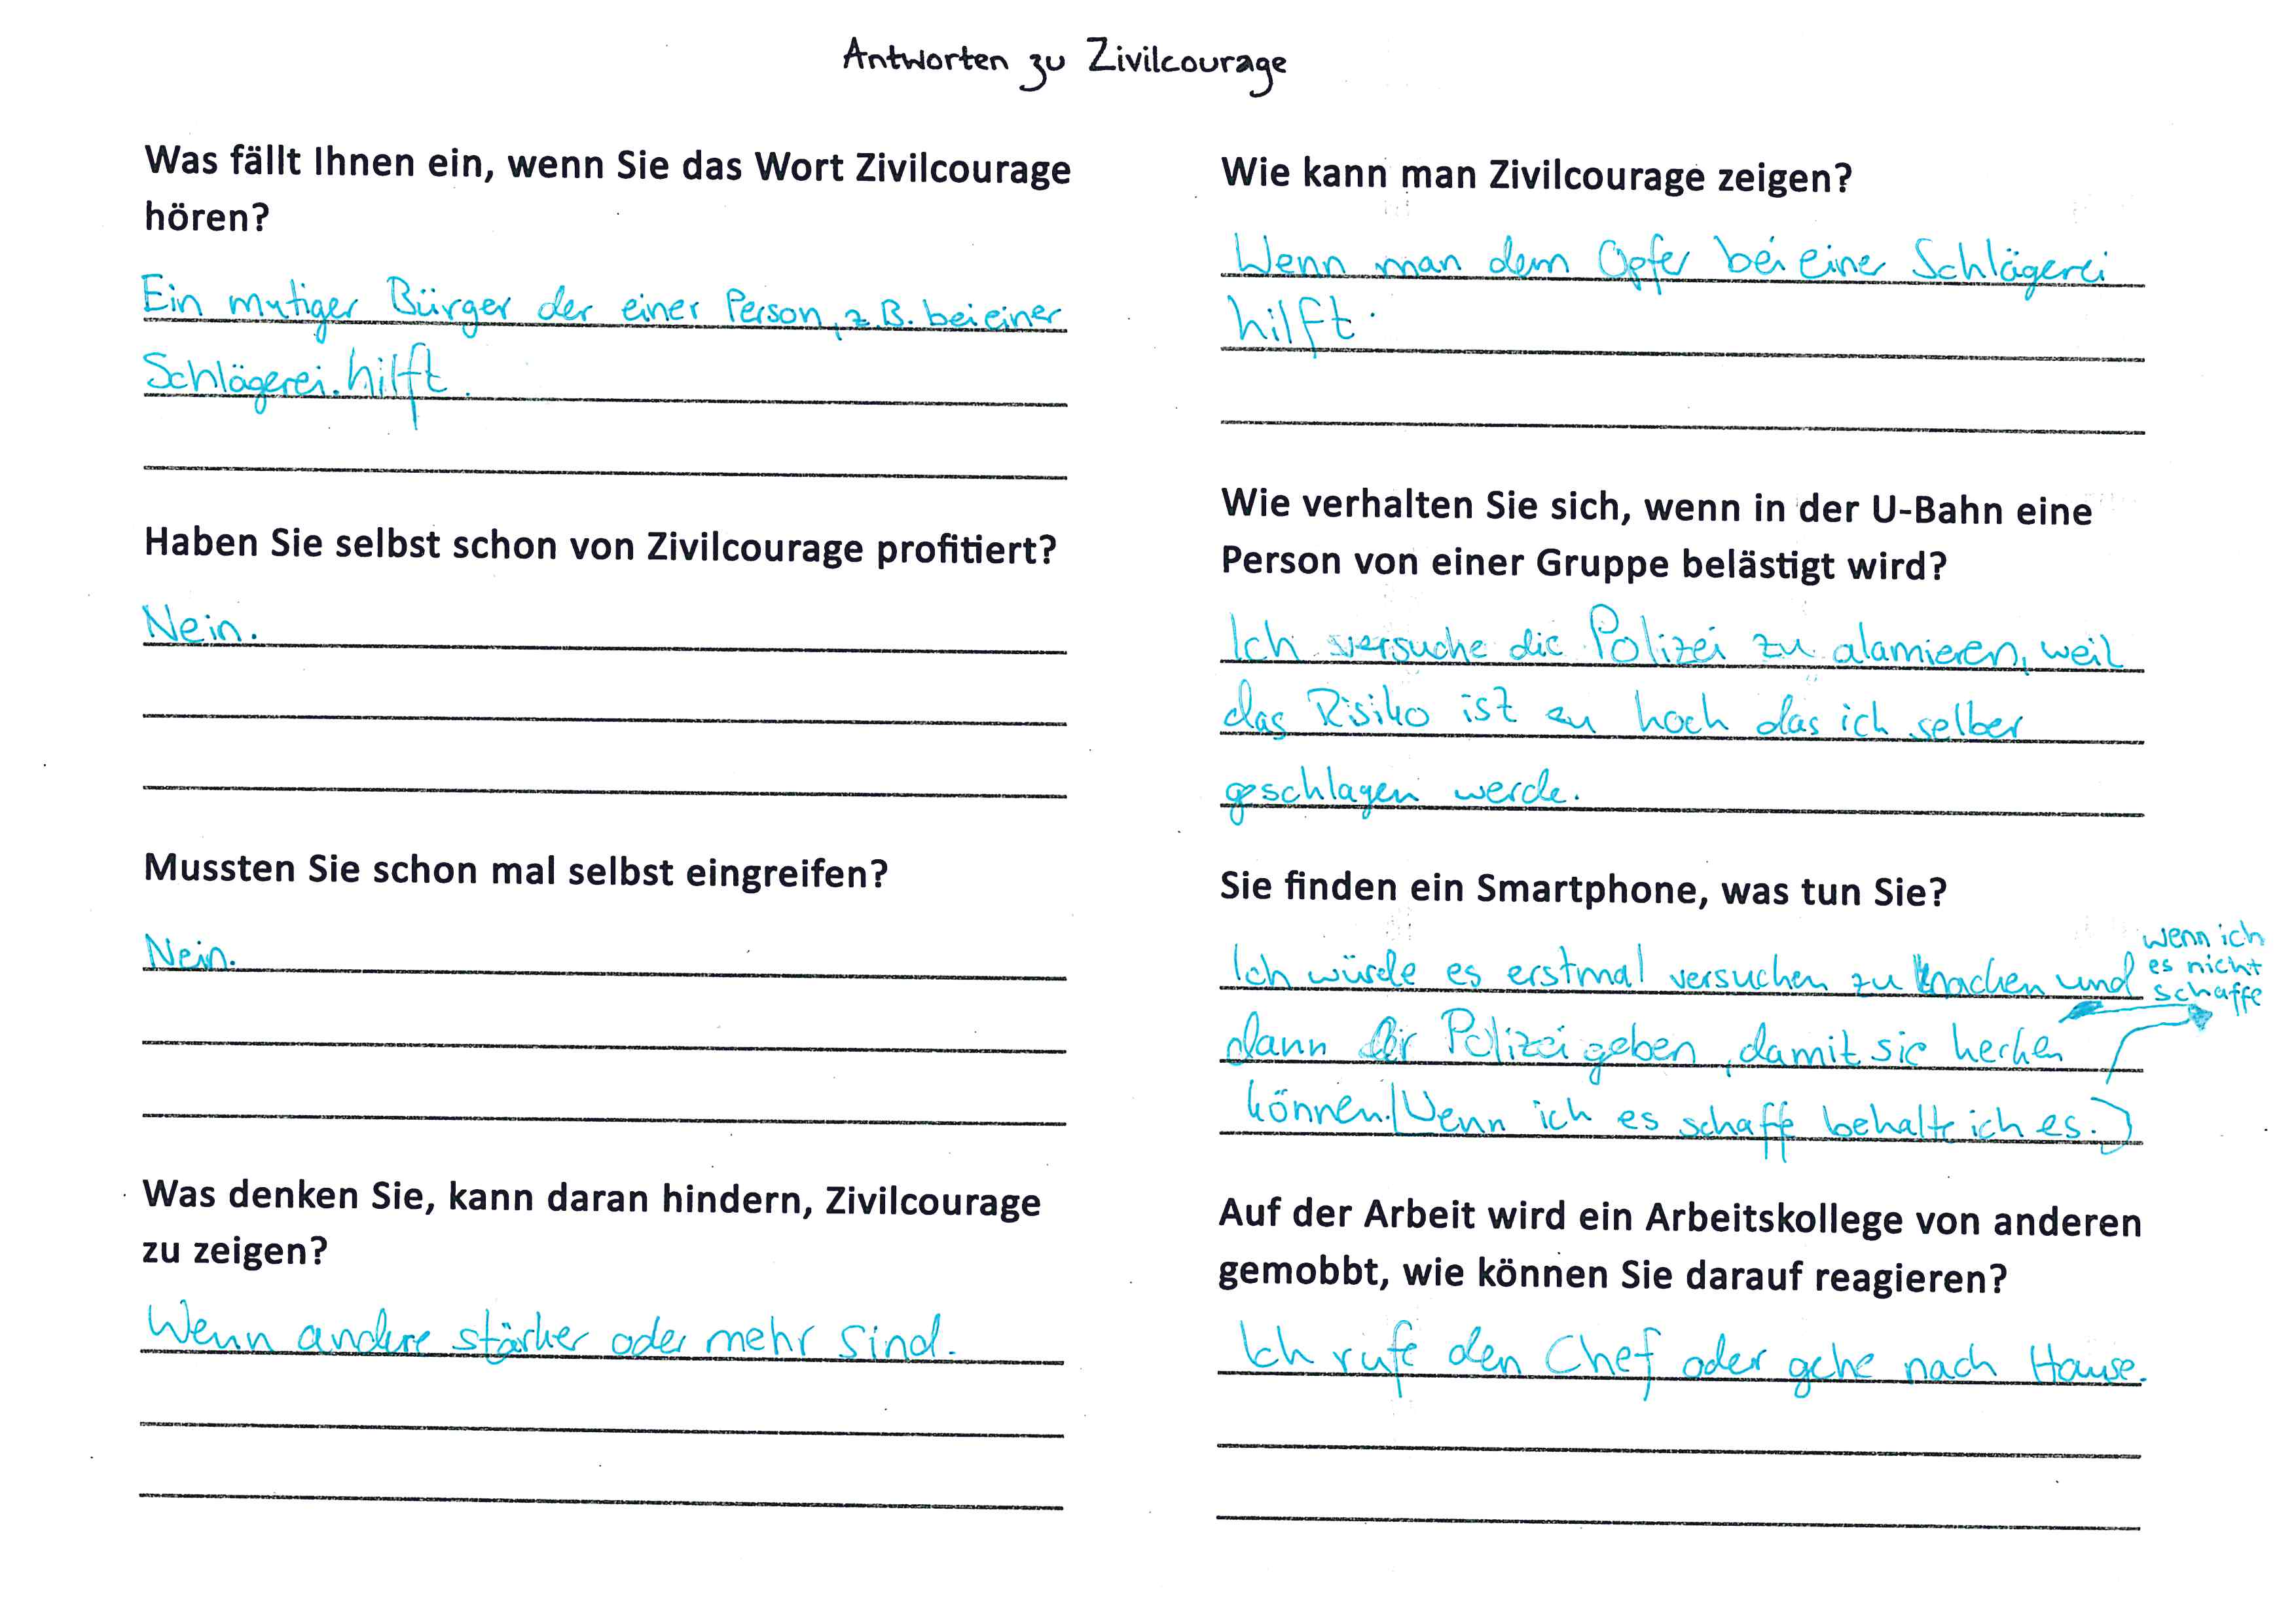 Antworten zu Zivilcourage
Was fällt Ihnen ein, wenn Sie das Wort Zivilcourage
hören?
Ein mutiger Bürger der einer Person, z.B. bei einer
Schlägerei hilft.
Haben Sie selbst schon von Zivilcourage profitiert?
Nein.
Mussten Sie schon mal selbst eingreifen?
Nein.
Was denken Sie, kann daran hindern, Zivilcourage
zu zeigen?
Wenn andere stärker oder mehr sind.
Wie kann man Zivilcourage zeigen?
Wenn man dem Opfer bei einer Schlägerei
hilft.
Wie verhalten Sie sich, wenn in der U-Bahn eine
Person von einer Gruppe belästigt wird?
Ich versuche die Polizei zu alamieren, weil
das Risiko ist zu hoch das ich selber
geschlagen werde.
Sie finden ein Smartphone, was tun Sie?
Ich würde es erstmal versuchen zu knacken und
wenn ich
es nicht
schaffe
dann der Polizei geben, damit sie
können. (Wenn ich es schaffe behalte ich es.)
Auf der Arbeit wird ein Arbeitskollege von anderen
gemobbt, wie können Sie darauf reagieren?
Ich rufe den Chef oder gehe nach Hause.